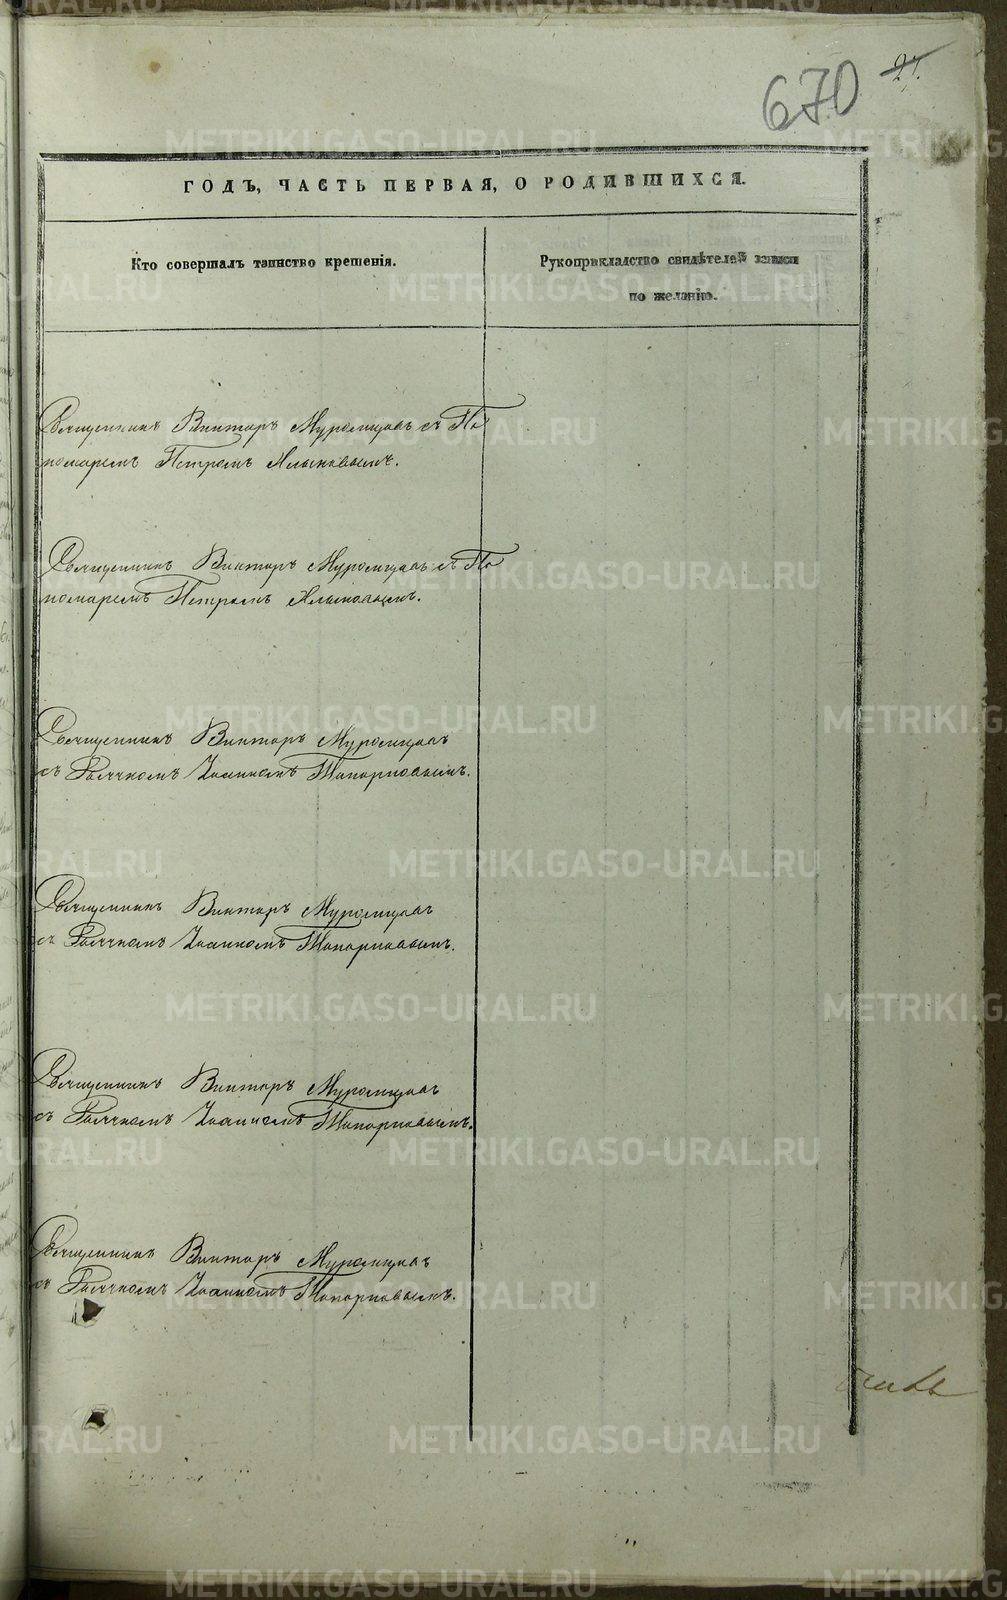 670
27.
ГОДЪ, ЧАСТЬ ПЕРВАЯ, О РОДИВШИХСЯ.
Кто совершалъ таинство крещенія.
Рукоприкладство свидѣтелей записи
по желанію.
Священникъ Викторъ Муромцовъ съ По
номаремъ Петромъ
Священникъ Викторъ Муромцовъ съ По
номаремъ Петромъ
Священникъ Викторъ Муромцовъ
съ Дьячкомъ Іоанномъ Топорковымъ.
Священникъ Викторъ Муромцовъ
съ Дьячкомъ Іоанномъ Топорковымъ.
Священникъ Викторъ Муромцовъ
съ Дьячкомъ Іоанномъ Топорковымъ.
Священникъ Викторъ Муромцовъ
съ Дьячкомъ Іоанномъ Топорковымъ.
METRIKI.GASO-URAL.RU